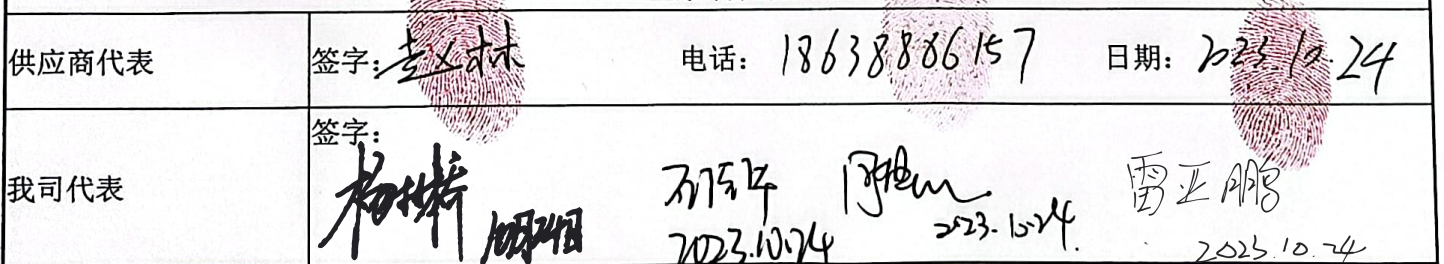 供应商代表 签字:赵林 电话:18638886157 日期:2023.10.24
签字:
我司代表 雷亚鹏
10月24日 2023.10.24 2023.10.24 2023.10.24